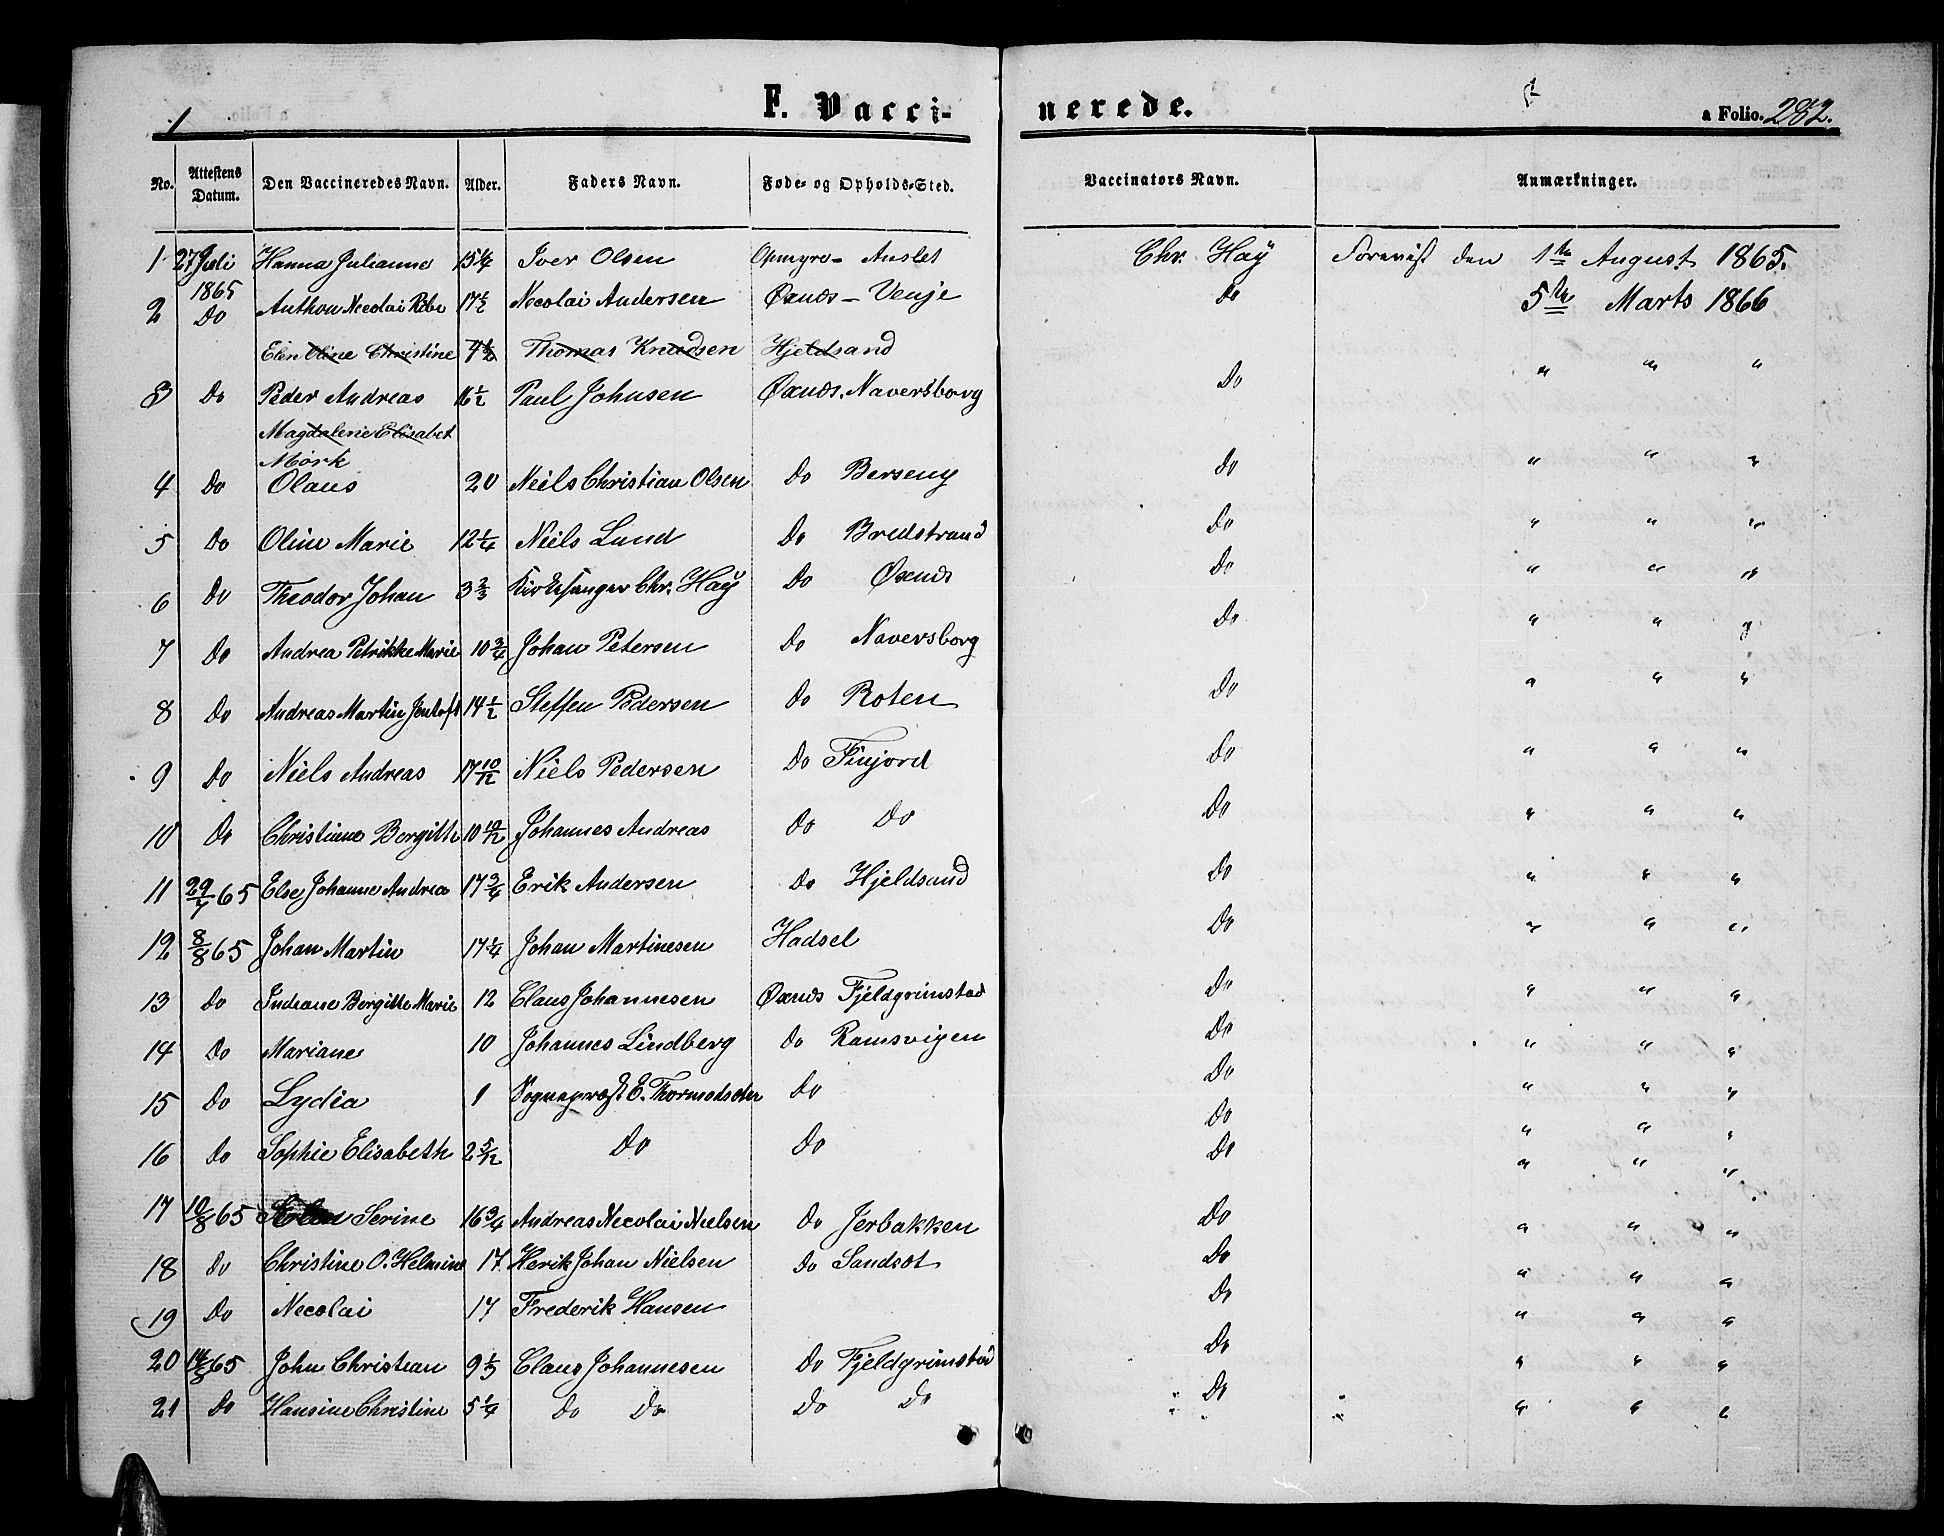 1 F. Vacci- nerede. a Folio. 282.
No. Attestens Datum. Den Vaccineredes Navn. Alder. Faders Navn. Føde- og Opholds-Sted. Vaccinators Navn. Anmærkninger.
1 27 Juli 1865 Hanna Julianne 15 1/4 Iver Olsen Opmyre- Anslet Chr. Haÿ Forevist den 1te August 1865.
2 Do Anthon Necolai Ribe 17 1/2 Necolai Andersen Øxnds- Venje Do 5te Marts 1866
Elen Oline Christine 4 1/2 Thomas Knudsen Hjeldsand
3 Do Peder Andreas 16 1/2 Paul Johnsen Øxnds. Naversborg Do " " "
Magdalene Elisabet
Mörk
4 Do Olaus 20 Neils Christian Olsen Do Berseng Do " " "
5 Do Oline Marie 12 1/4 Niels Lund Do Bredstrand Do " " "
6 Do Theodor Johan 3 2/3 Kirkesanger Chr. Haÿ Do Øxnds Do " " "
7 Do Andrea Petrikke Marie 10 3/4 Johan Petersen Do Naversborg Do " " "
8 Do Andreas Martin Jentoft 14 1/2 Steffen Pedersen Do Roten Do " " "
9 Do Niels Andreas 17 10/12 Niels Pedersen Do Finjord Do " " "
10 Do Christiane Bergitte 10 10/12 Johannes Andreas Do Do Do " " "
11 29/7 65 Else Johanne Andrea 17 3/4 Erik Andersen Do Hjeldsand Do " " "
12 8/8 65 Johan Martin 17 1/4 Johan Martinesen Hadsel Do " " "
13 Do Indiane Bergitte Marie 12 Claus Johannesen Øxnds Fjeldgrimstad Do " " "
14 Do Mariane 10 Johannes Lindberg Do Ramsvigen Do " " "
15 Do Lydia 1 Sognepræst E. Thormodsæter Do Do " " "
16 Do Sophie Elisabeth 2 5/12 Do Do Do " " "
17 10/8 65 Serine 16 3/4 Andreas Necolai Nielsen Do Jerbakken Do " " "
18 Do Christine O. Helmine 17 Henrik Johan Nielsen Do Sandset Do " " "
19 Do Necolai 17 Frederik Hansen Do " " "
20 14/8 65 John Christian 9 1/3 Claus Johannesen Do Fjeldgrimstad Do " " "
21 Do Hansine Christine 5 1/4 Do Do Do Do " Do " " " "